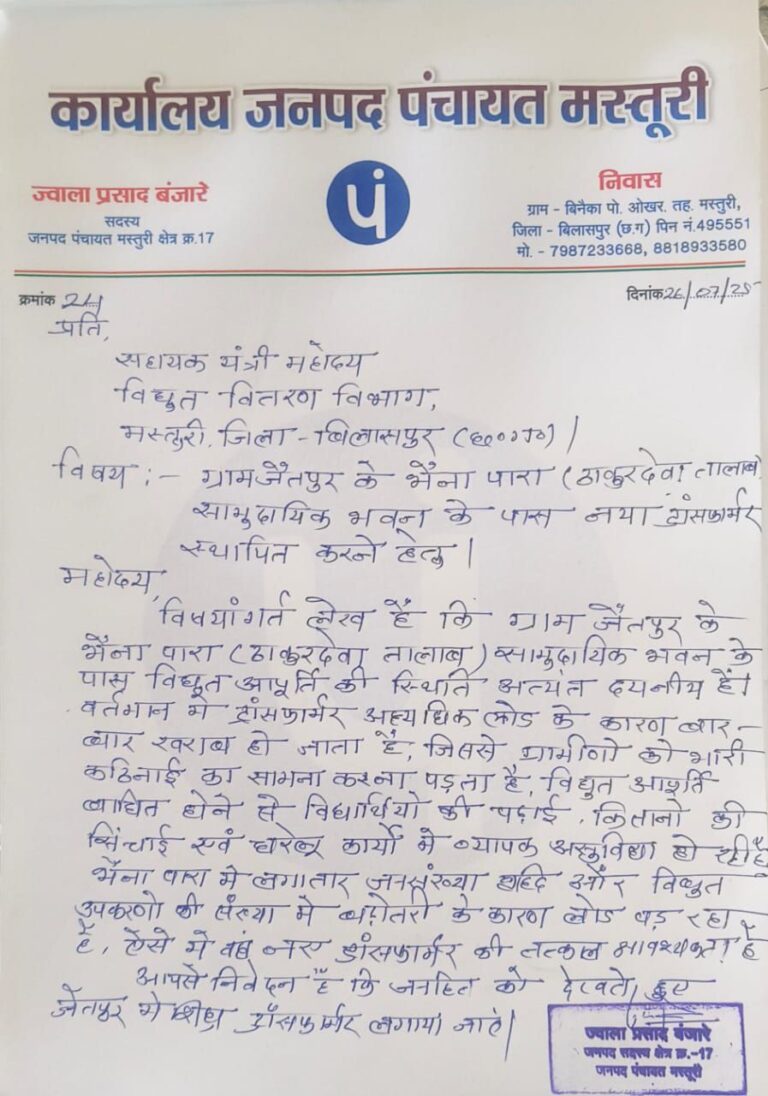 कार्यालय जनपद पंचायत मस्तूरी
पं
ज्वाला प्रसाद बंजारे
सदस्य
जनपद पंचायत मस्तुरी क्षेत्र क्र.17
निवास
ग्राम - बिनैका पो. ओखर. तह. मस्तुरी,
जिला - बिलासपुर (छ.ग) पिन नं.495551
मो. - 7987233668, 8818933580
क्रमांक 24
दिनांक 26/07/25
प्रति,
सहायक यंत्री महोदय
विद्युत वितरण विभाग,
मस्तुरी, जिला-बिलासपुर (छ०ग०)।
विषय :- ग्राम जैतपुर के भैना पारा (ठाकुरदेवा तालाब)
सामुदायिक भवन के पास नया ट्रांसफार्मर
स्थापित करने हेतु।
महोदय,
विषयांगर्त लेख है कि ग्राम जैतपुर के
भैना पारा (ठाकुरदेवा तालाब) सामुदायिक भवन के
पास विद्युत आपूर्ति की स्थिति अत्यंत दयनीय है।
वर्तमान मे ट्रांसफार्मर अत्यधिक लोड के कारण बार-
बार खराब हो जाता है, जिससे ग्रामीणो को भारी
कठिनाई का सामना करना पड़ता है, विद्युत आपूर्ति
बाधित होने से विद्यार्थियो की पढ़ाई, किसानो की
सिंचाई एवं घरेलू कार्यो मे व्यापक असुविधा हो रही है
भैना पारा मे लगातार जनसंख्या वृद्दि और विद्युत
उपकरणो की संख्या मे बढ़ोतरी के कारण लोड बढ़ रहा
है, ऐसे मे वहां नए ट्रांसफार्मर की तत्काल आवश्यकता है
आपसे निवेदन है कि जनहित को देखते हुए
जैतपुर मे शीघ्र ट्रांसफार्मर लगाया जावे।
ज्वाला प्रसाद बंजारे
जनपद सदस्य क्षेत्र क्र.-17
जनपद पंचायत मस्तूरी